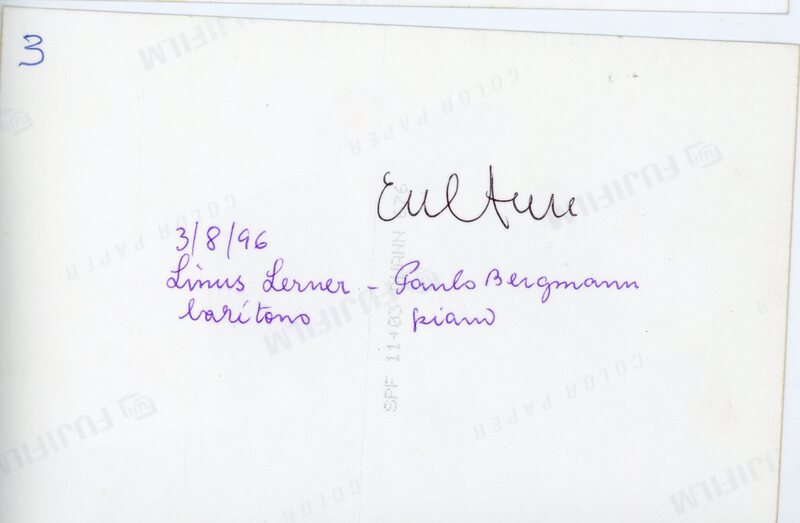 3
FUJIFILM
COLOR PAPER
FUJIFILM
3/8/96
Linus Lerner - Paulo Bergmann
barítono piano
COLOR PAPER
COLOR PAPER
FUJIFILM
COLOR PAPER
FUJIFILM
FUJIFILM
COLOR PAPER